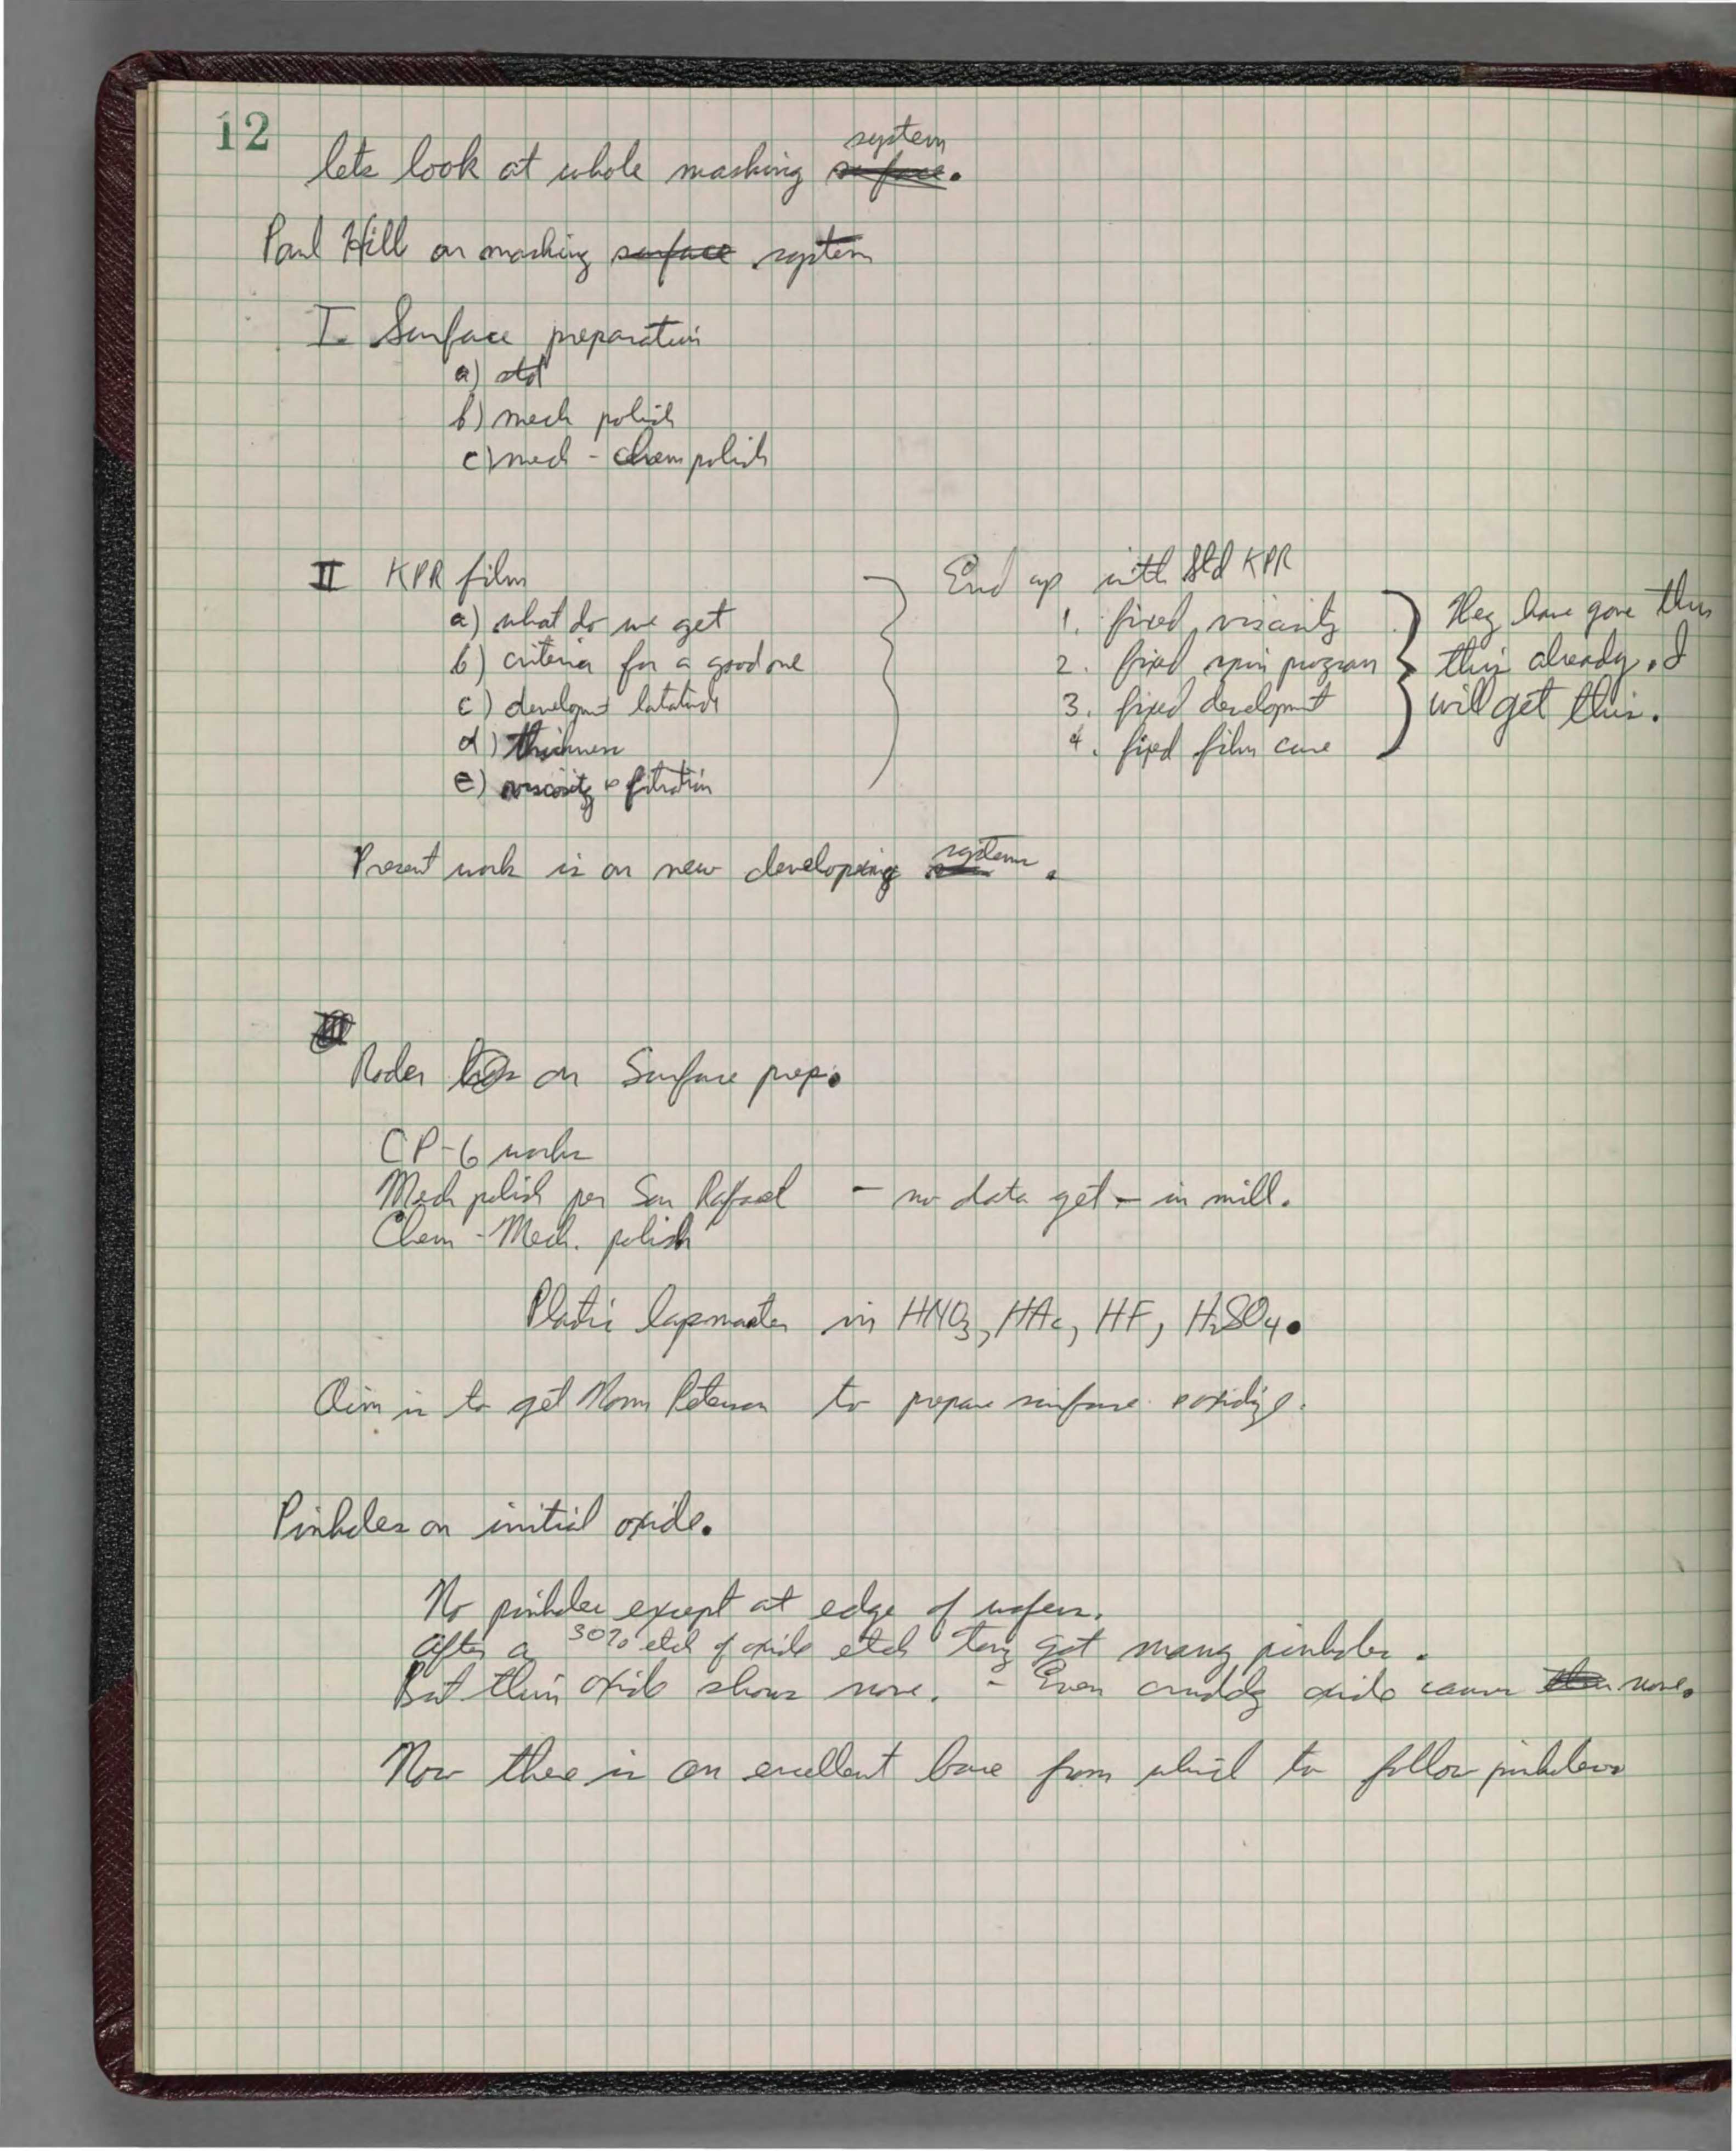 12
lets look at whole masking system surface.
Paul Hill on masking surface system
I. Surface preparation
a) std
b) mech polish
c) mech - chem polish
II KPR film
a) what do we get
b) criteria for a good one
c) developmt latatude
d) thickness
e) viscosity & filtration
End up with Std KPR
1. fixed viscosity
2. fixed spin program
3. fixed developmt
4. fixed film cure
They have gone thru
this already. I
will get this.
Present work is on new developing system.
III
on Surface prep.
CP-6 works
Mech polish per San Rafael - no data yet - in mill.
Chem - Mech. polish
Plastic lapmaster in HNO3, HAc, HF, H2SO4.
Aim is to get Norm Peterson to prepare surface & oxidize.
Pinholes on initial oxide.
No pinholes except at edge of wafers.
After a 30% etch of oxide etch they got many pinholes.
But thin oxide shows none. - Even cruddy oxide causes none.
Now there is an excellent base from which to follow pinholes